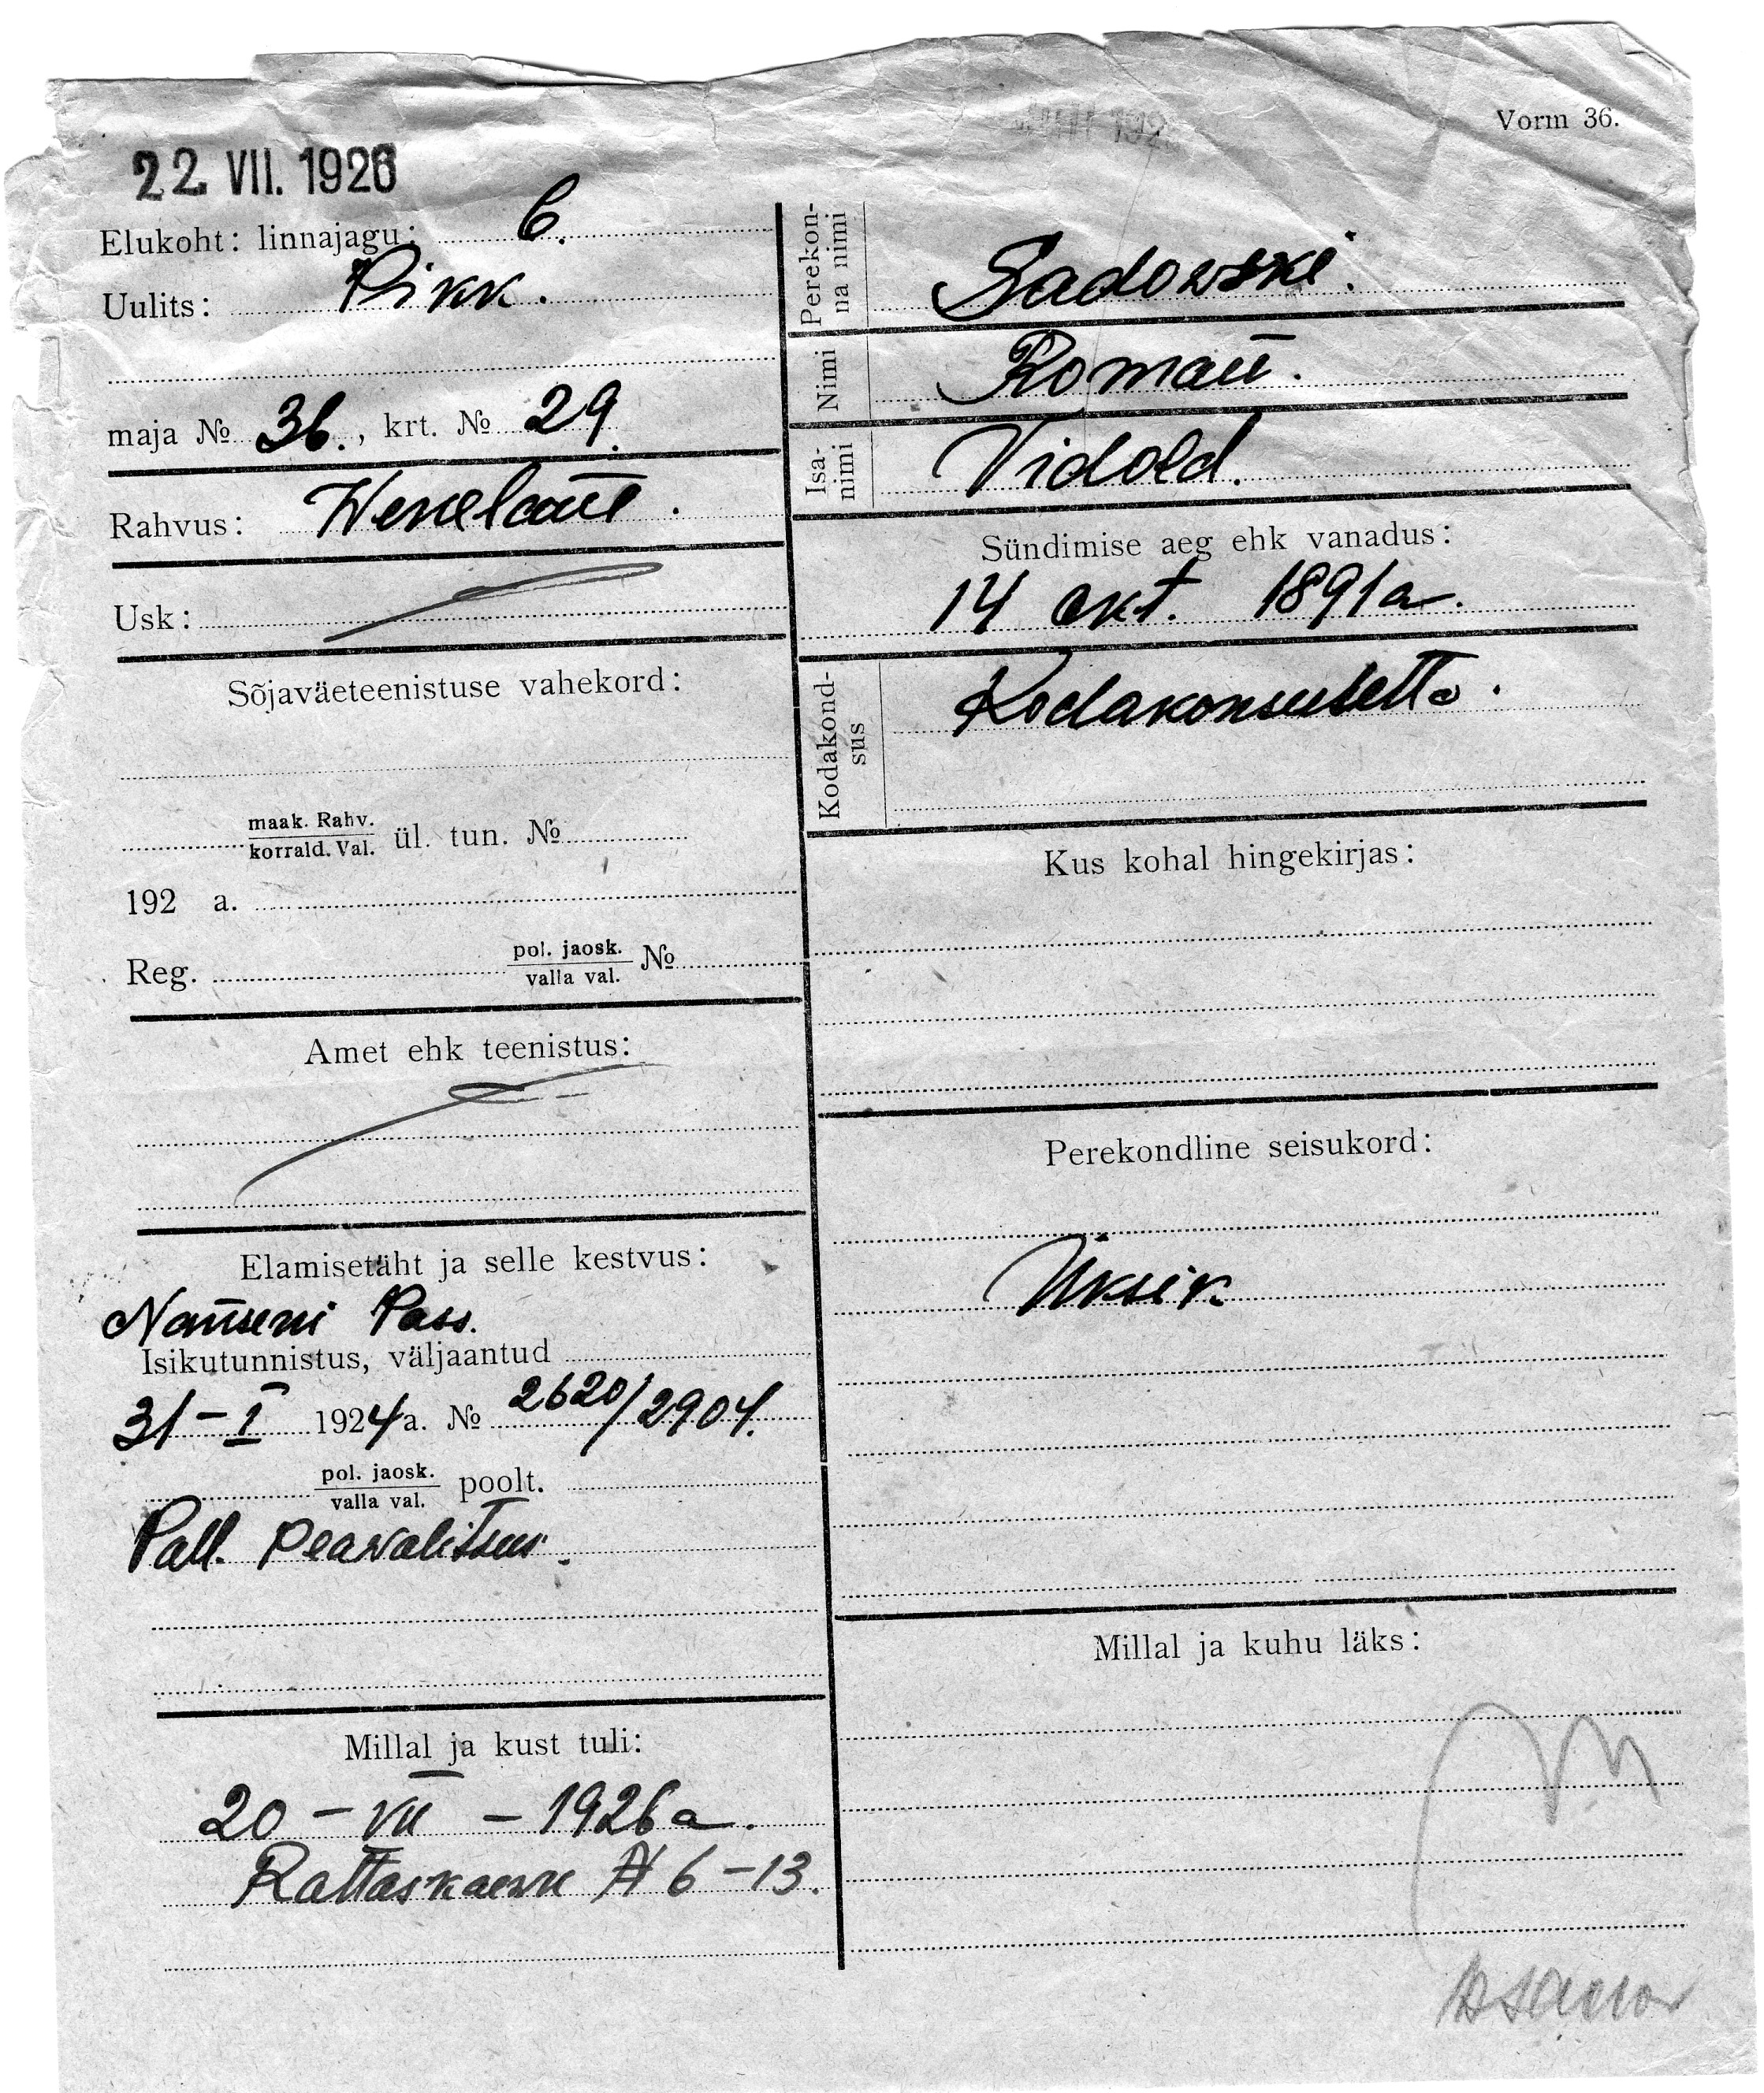 Vorm 36.
22. VII. 1926
Elukoht: linnajagu: 6.
Uulits: Pikk.
maja № 36., krt. № 29.
Rahvus: Wenelane.
Usk:
Sõjaväeteenistuse vahekord:
maak. Rahv.
korrald. Val. ül. tun. №
192 a.
Reg. pol. jaosk.
valla val. №
Amet ehk teenistus:
Elamisetäht ja selle kestvus:
Nanseni Pass.
Isikutunnistus, väljaantud
31-I 1924 a. № 2620/2904.
pol. jaosk.
valla val. poolt.
Pall. Peavalitsus.
Millal ja kust tuli:
20 - VII - 1926 a.
Rattaskaewu № 6-13.
Perekon-
na nimi Sadowski.
Nimi Roman.
Isa-
nimi Vidold.
Sündimise aeg ehk vanadus:
14 okt. 1891 a.
Kodakond-
sus Kodakonsuseta.
Kus kohal hingekirjas:
Perekondline seisukord:
Üksik.
Millal ja kuhu läks: